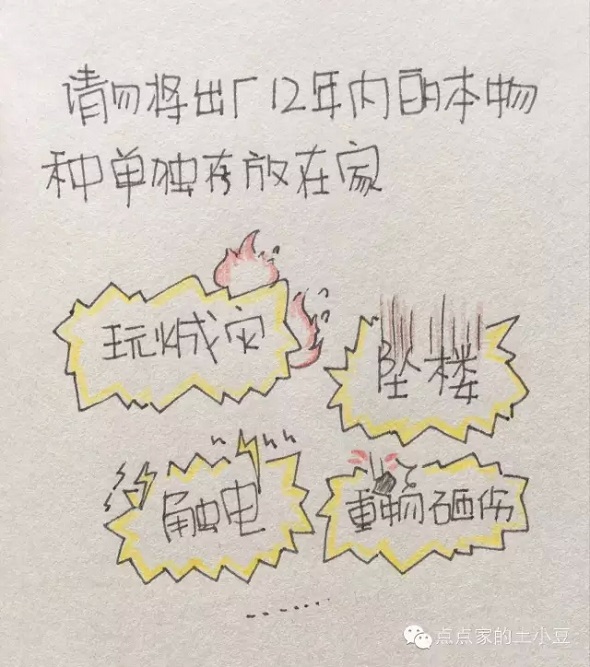 请勿将出厂12年内的本物
种单独存放在家
玩火成灾
坠楼
触电
重物砸伤
......
点点家的土小豆